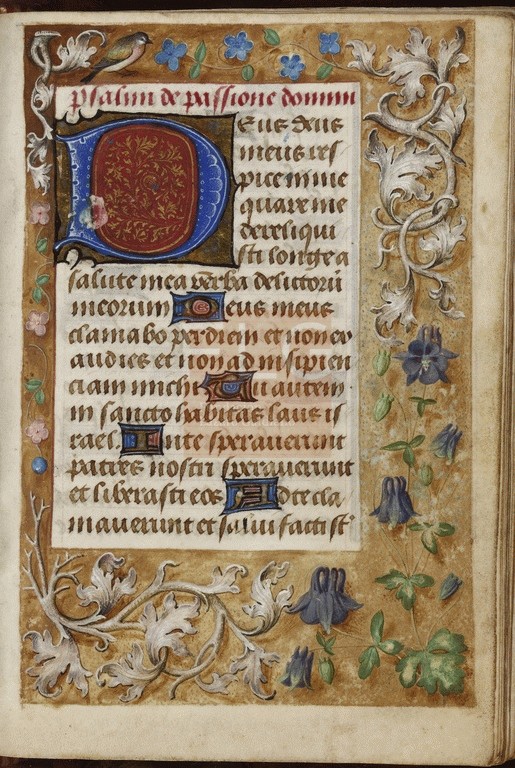 psalmi de passione domini
Deus deus
meus res
pice in me
quare me
dereliqui
sti longe a
salute mea verba delictorū
meorum Deus meus
clamabo per diem et non ex
audies et non ad insipien
ciam michi Tu autem
in sancto habitas laus is
rael In te speraverunt
patres nostri speraverunt
et liberasti eos Ad te cla
maverunt et salvi facti sť